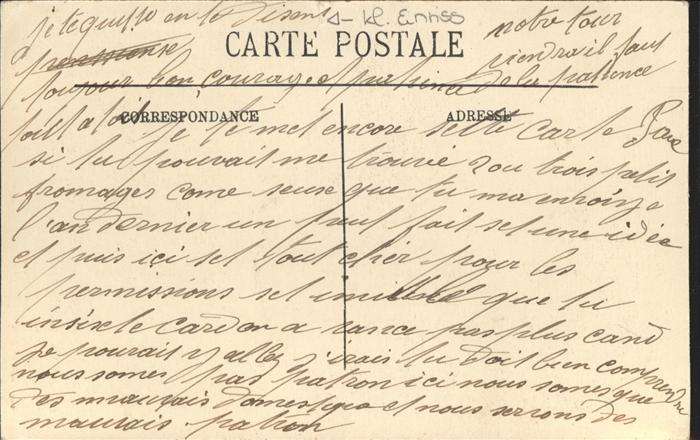 je te quitte en te disant
notre tour
CARTE POSTALE
viendra il faut
toujour bon courage et patience de la patience
CORRESPONDANCE
ADRESSE
je te met encore sette carte Para
si tu pouvait me trouvé 2 ou trois petit
fromages come seuse que tu ma envoiye
l'an dernier un peut fait set une idée
et puis ici set tout cher pour les
permissions set inutile que tu
insiste le cardon a vance pas plus cand
je pourait y aller j'irais tu doit bien comprendre
nous somes pas patron ici nous somes que
des mauvais domestique et nous serons des
mauvais patron